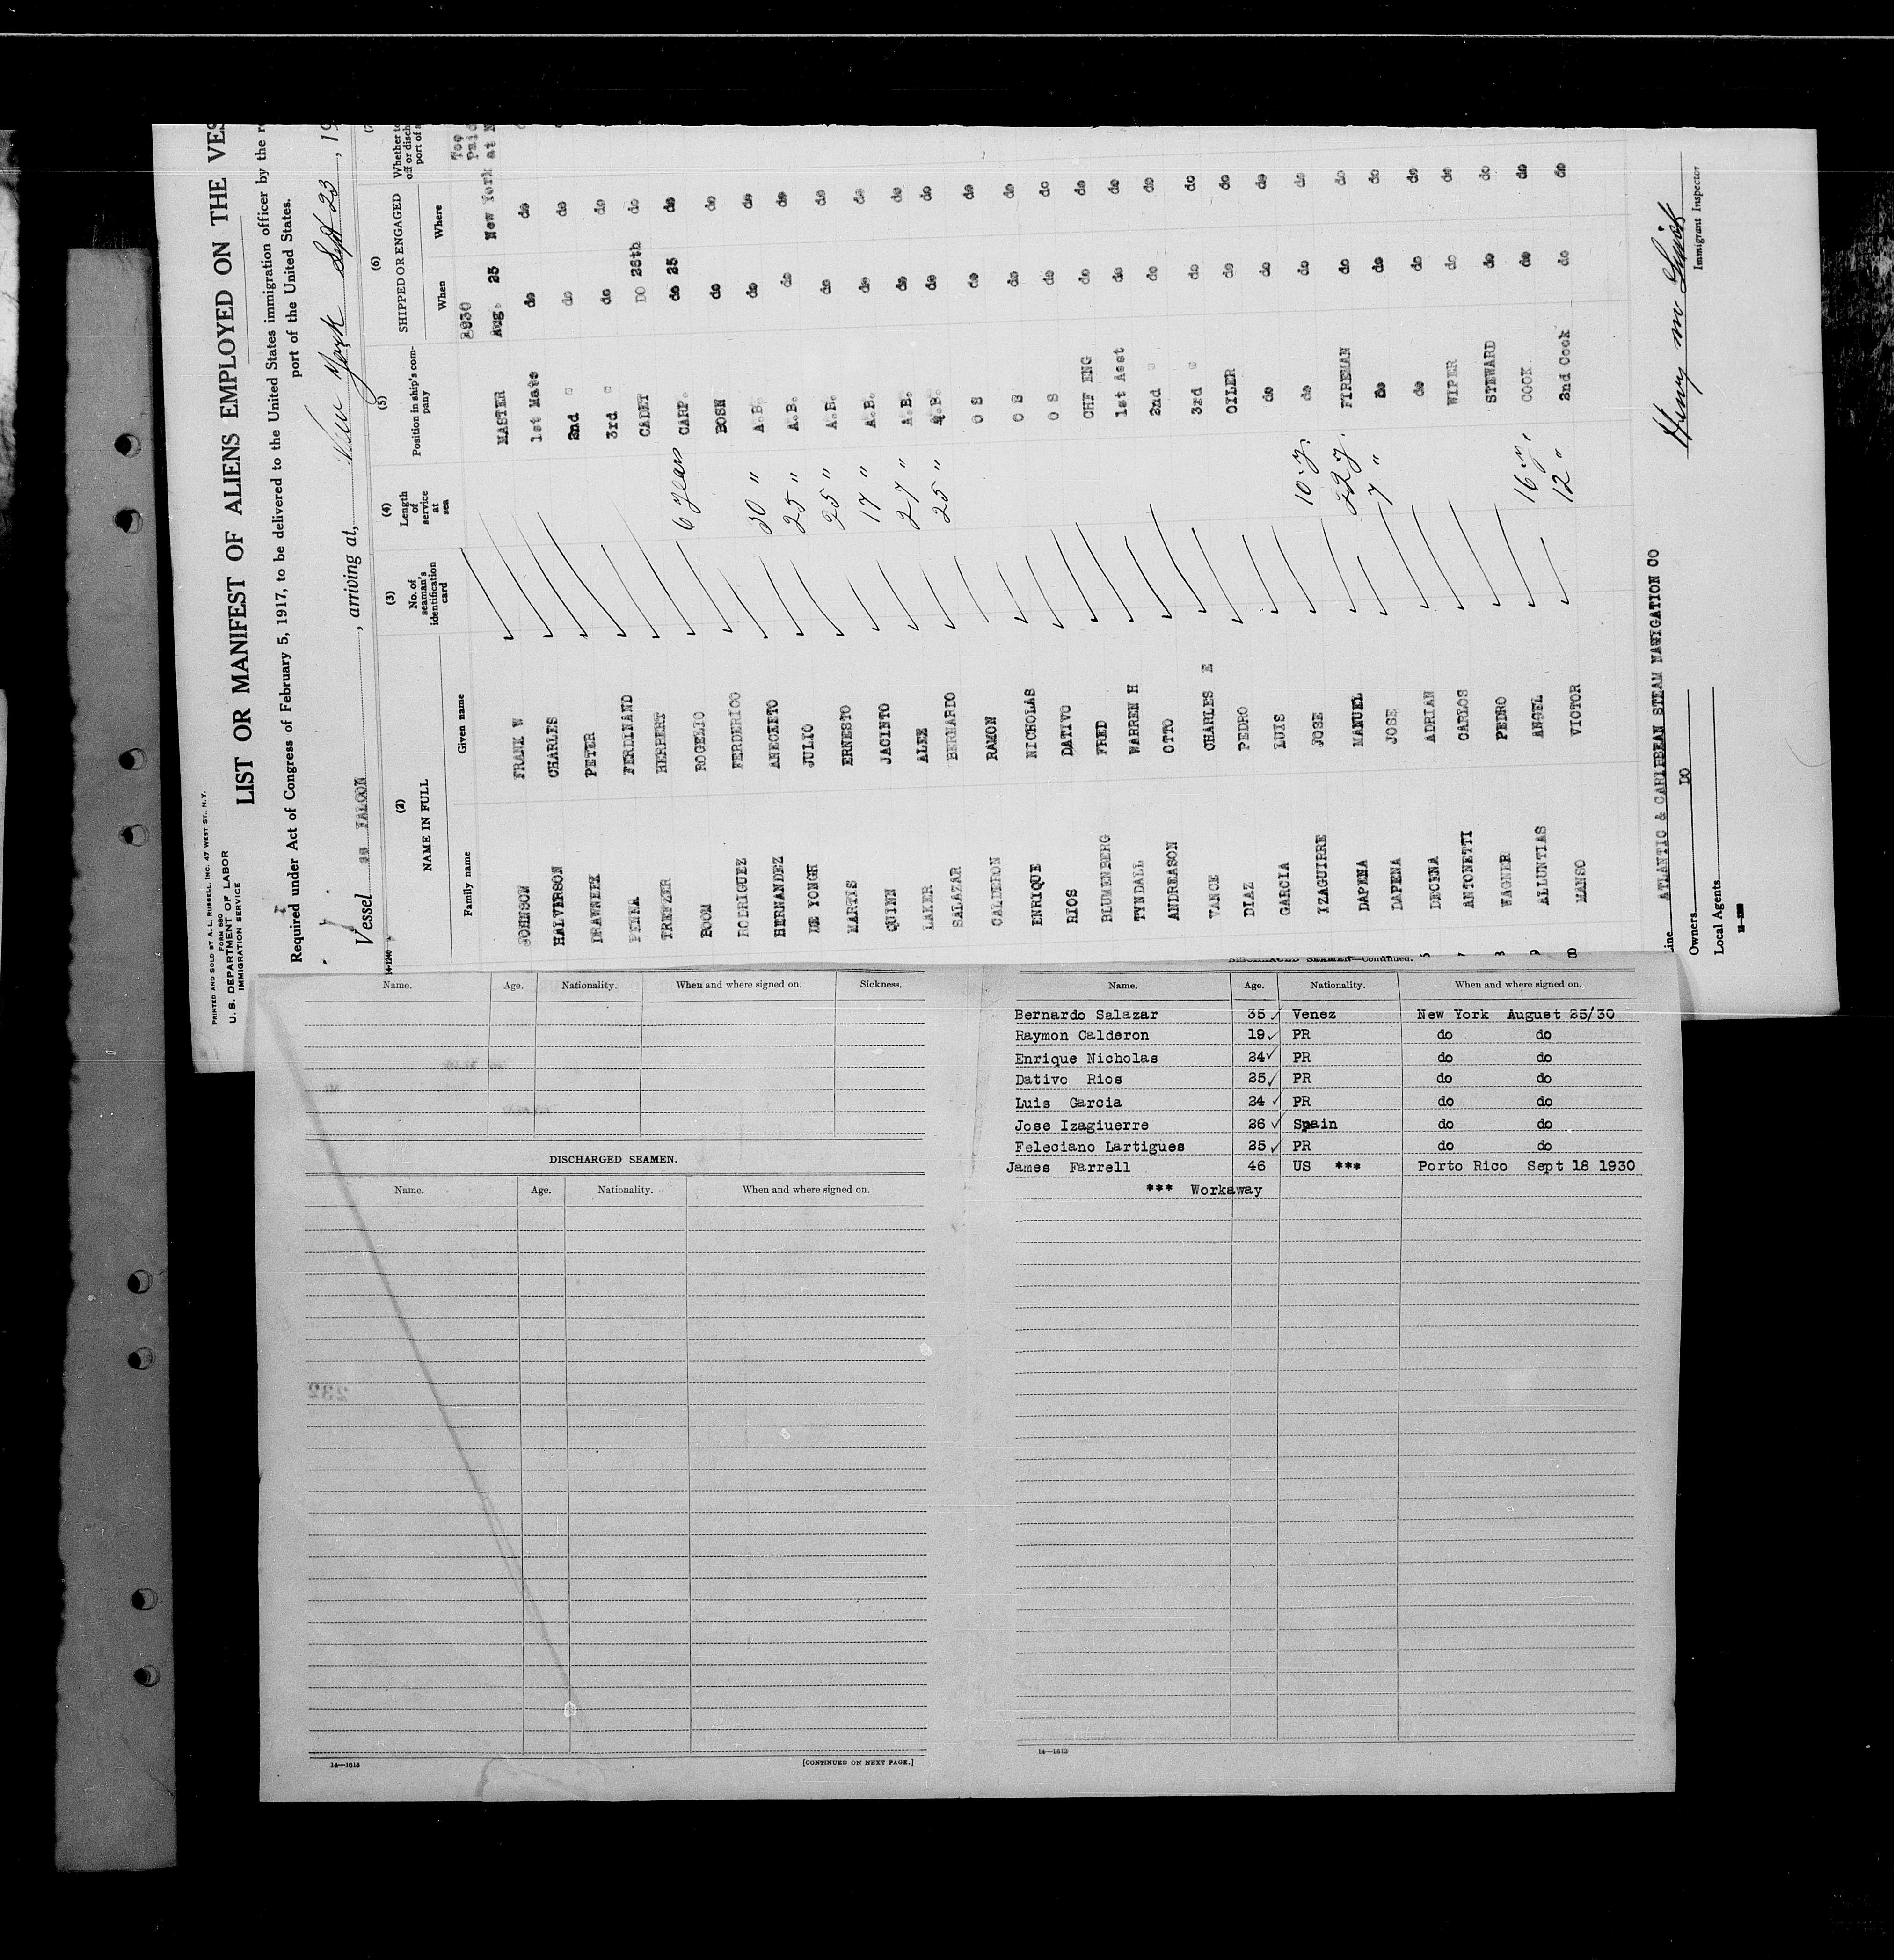 PRINTED AND SOLD BY A. L. RUSSELL, INC. 47 WEST ST., N.Y.
FORM 680
U. S. DEPARTMENT OF LABOR
IMMIGRATION SERVICE
LIST OR MANIFEST OF ALIENS EMPLOYED ON THE VES
Required under Act of Congress of February 5, 1917, to be delivered to the United States immigration officer by the r
port of the United States.
Vessel SS FALCON, arriving at, New York Sept 23, 19
14-1240
(2) (3) (4) (5) (6)
NAME IN FULL No. of seaman's identification card Length of service at sea Position in ship's company SHIPPED OR ENGAGED Whether to
off or disch
port of
Family name Given name When Where
1930
JOHNSON FRANK W MASTER Aug. 25 New York
HALVERSON CHARLES 1st Mate do do
PETER 2nd " do do
FERDINAND 3rd " do do
TREFZER HERBERT CADET DO 26th do
BOOM ROGELIO 6 years CARP. do 25 do
RODRIGUEZ FERDERICO BOSN do do
HERNANDEZ ANECETO 30 " A.B. do do
DE YONGH JULIO 25 " A.B. do do
MARTIS ERNESTO 25 " A.B. do do
QUINN JACINTO 17 " A.B. do do
LAKER ALFE 27 " A.B. do do
SALAZAR BERNARDO 25 " A.B. do do
CALDERON RAMON O S do do
ENRIQUE NICHOLAS O S do do
RIOS DATIVO O S do do
BLUMENBERG FRED CHF ENG do do
TYNDALL WARREN H 1st Asst do do
ANDREASON OTTO 2nd " do do
VANCE CHARLES E 3rd " do do
DIAZ PEDRO OILER do do
GARCIA LUIS do do do
IZAGUIRRE JOSE 10 y. do do do
DAPENA MANUEL 22 y. FIREMAN do do
DAPENA JOSE 7 " Do do do
DECENA ADRIAN do do do
ANTONETTI CARLOS WIPER do do
WAGNER PEDRO STEWARD do do
ALLUNTIAS ANGEL 16 y. COOK do do
MANSO VICTOR 12 " 2nd Cook do do
ine ATLANTIC & CARIBBEAN ST STEAM NAVIGATION CO
Owners DO
Local Agents
Henry M
Immigrant Inspector
Name. Age. Nationality. When and where signed on. Sickness.
DISCHARGED SEAMEN.
Name. Age. Nationality. When and where signed on.
14—1613
[CONTINUED ON NEXT PAGE.]
DISCHARGED SEAMEN—Continued.
Name. Age. Nationality. When and where signed on.
Bernardo Salazar 35 Venez New York August 25/30
Raymon Calderon 19 PR do do
Enrique Nicholas 24 PR do do
Dativo Rios 25 PR do do
Luis Garcia 24 PR do do
Jose Izagiuerre 26 Spain do do
Feleciano Lartigues 25 PR do do
James Farrell 46 US *** Porto Rico Sept 18 1930
*** Workaway
14—1613